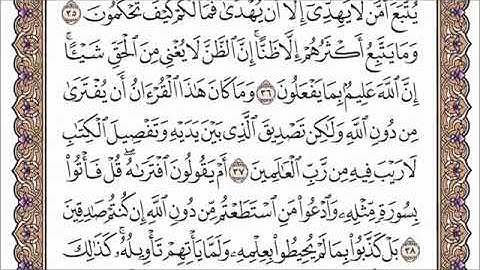 يُتَّبَعَ أَمَّن لَّا يَهِدِّىٓ إِلَّآ أَن يُهْدَىٰ فَمَا لَكُمْ كَيْفَ تَحْكُمُونَ ٣٥
وَمَا يَتَّبِعُ أَكْثَرُهُمْ إِلَّا ظَنًّا ۚ إِنَّ ٱلظَّنَّ لَا يُغْنِى مِنَ ٱلْحَقِّ شَيْـًٔا ۚ
إِنَّ ٱللَّهَ عَلِيمٌۢ بِمَا يَفْعَلُونَ ٣٦ وَمَا كَانَ هَٰذَا ٱلْقُرْءَانُ أَن يُفْتَرَىٰ
مِن دُونِ ٱللَّهِ وَلَٰكِن تَصْدِيقَ ٱلَّذِى بَيْنَ يَدَيْهِ وَتَفْصِيلَ ٱلْكِتَٰبِ
لَا رَيْبَ فِيهِ مِن رَّبِّ ٱلْعَٰلَمِينَ ٣٧ أَمْ يَقُولُونَ ٱفْتَرَىٰهُ ۖ قُلْ فَأْتُوا۟
بِسُورَةٍ مِّثْلِهِۦ وَٱدْعُوا۟ مَنِ ٱسْتَطَعْتُم مِّن دُونِ ٱللَّهِ إِن كُنتُمْ صَٰدِقِينَ
٣٨ بَلْ كَذَّبُوا۟ بِمَا لَمْ يُحِيطُوا۟ بِعِلْمِهِۦ وَلَمَّا يَأْتِهِمْ تَأْوِيلُهُۥ ۚ كَذَٰلِكَ